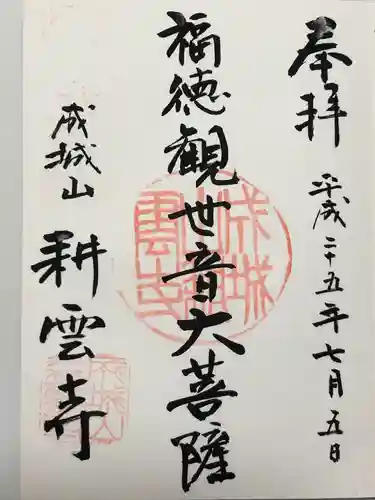 奉拝
平成二十五年七月五日
福徳觀世音大菩薩
成城山
耕雲寺